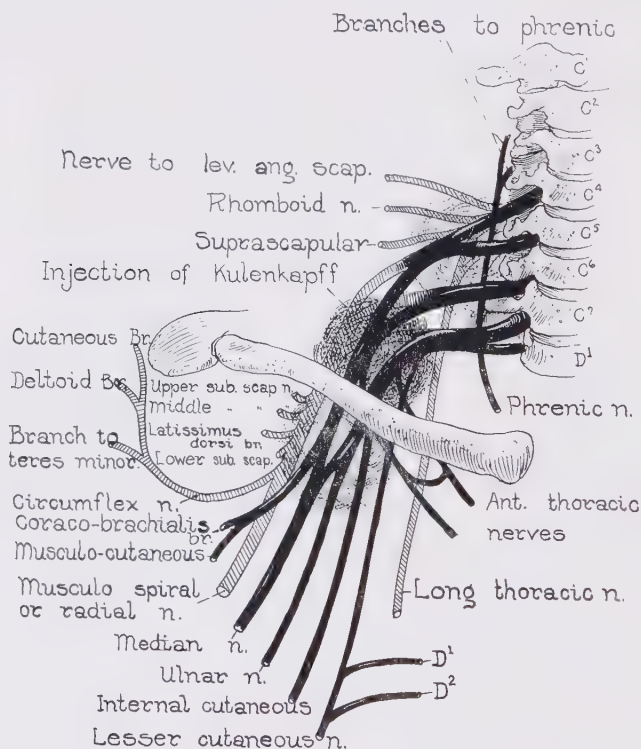 Branches to phrenic
C
C²
C³
C⁴
C⁵
C⁶
C⁷
D¹
Nerve to lev. ang. scap.
Rhomboid n.
Suprascapular
Injection of Kulenkapff
Cutaneous Br.
Deltoid Br.
Branch to
teres minor.
Upper sub. scap n.
middle " "
Latissimus
dorsi br.
Lower sub. scap.
Phrenic n.
Circumflex n.
Coraco-brachialis
br.
Musculo-cutaneous
Musculo spiral
or radial n.
Median n.
Ulnar n.
Internal cutaneous
Lesser cutaneous n.
Ant. thoracic
nerves
Long thoracic n.
D¹
D²